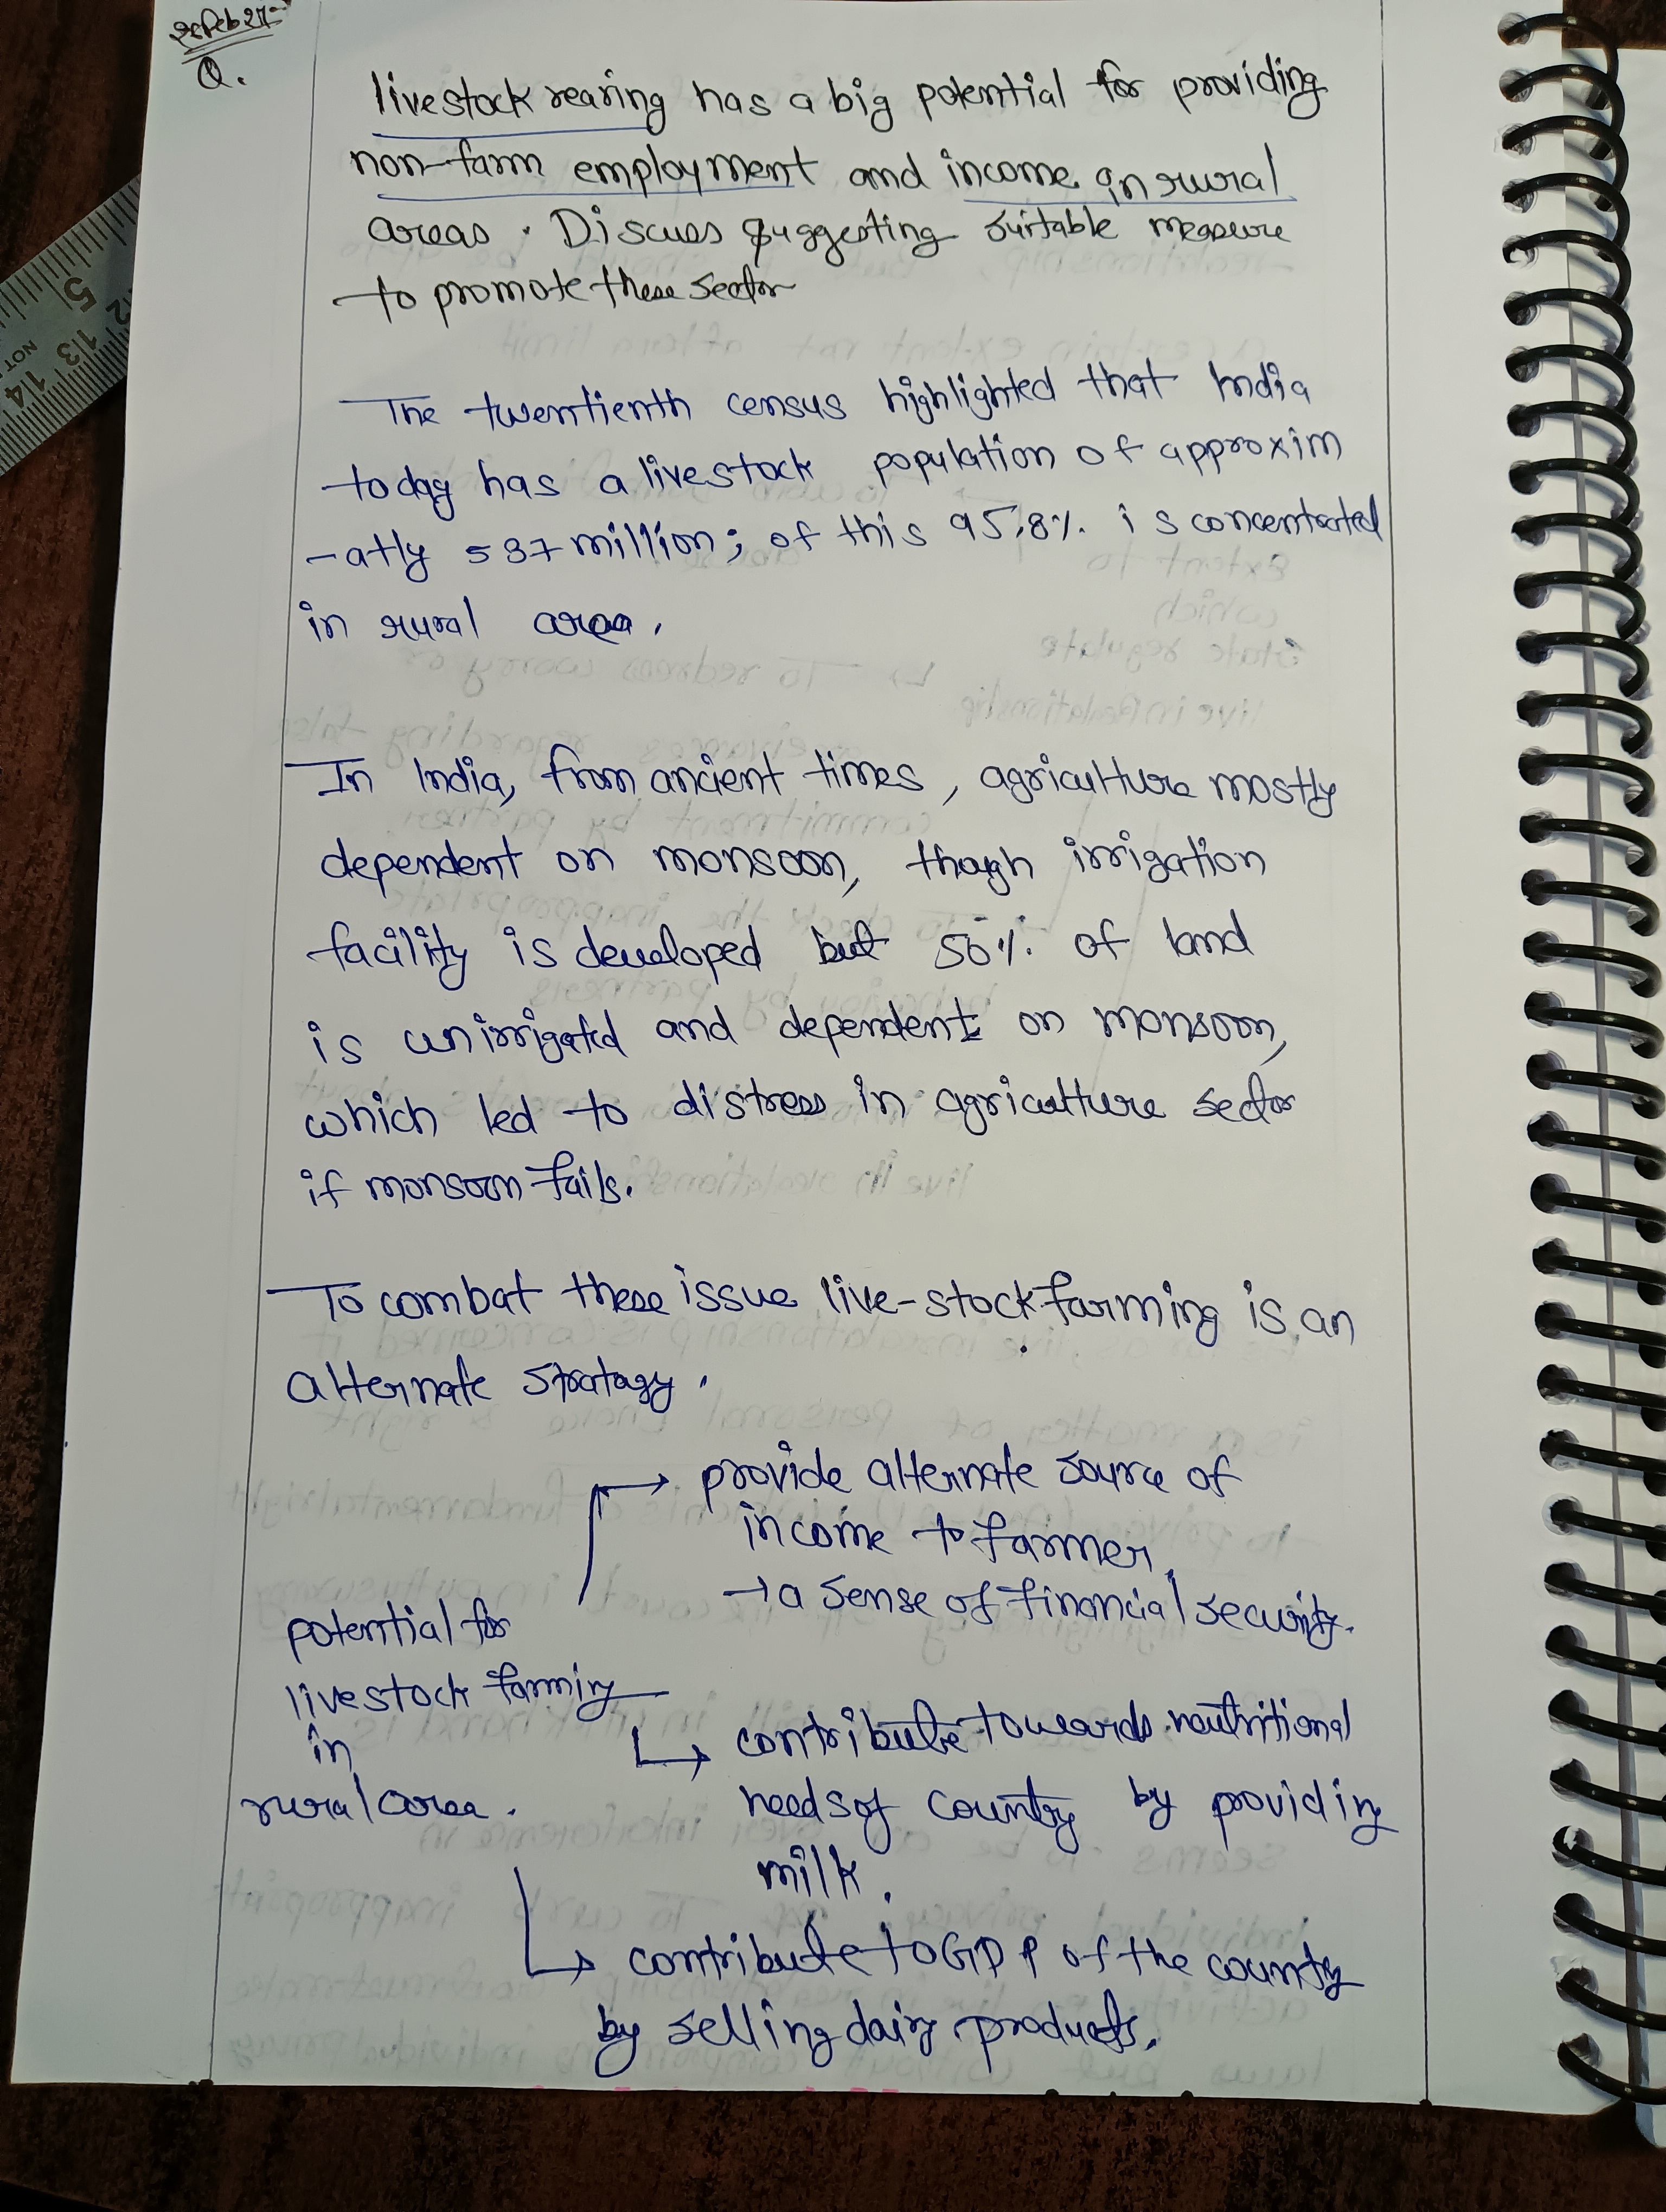 Q.
livestock rearing has a big potential for providing
non-farm employment and income in rural
areas. Discuss suggesting suitable measure
to promote these sector
The twentienth census highlighted that India
today has a livestock population of approxim
-atly 537 million; of this 95.8% is concentrated
in rural area.
In India, from ancient times, agriculture mostly
dependent on monsoon, though irrigation
facility is developed but 50% of land
is unirrigated and dependent on monsoon,
which led to distress in agriculture sector
if monsoon fails.
To combat these issue live-stock farming is an
alternate stratagy.
→ provide alternate source of
income to farmer.
→ a sense of financial security.
potential for
livestock farming
in
rural area.
→ contribute towards nutritional
needs of country by providing
milk.
→ contribute to GDP of the country
by selling dairy products.
5
13 14
NOT